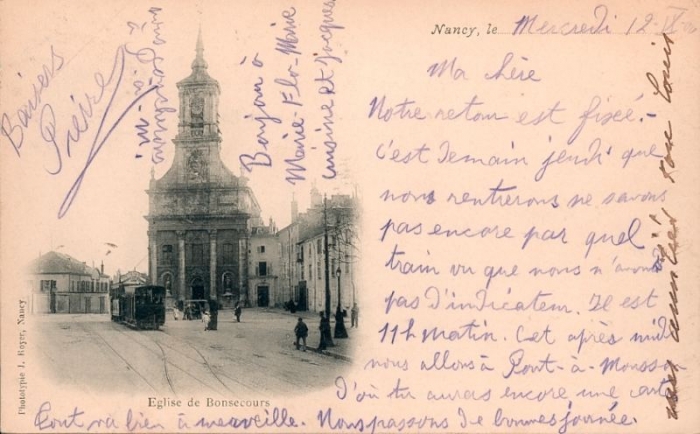 Nancy, le Mercredi 12-
Ma chère
Notre retour est fixé.-
C'est demain jeudi que
nous rentrerons ne savons
pas encore par quel
train vu que nous n'avons
pas d'indicateur. Il est
11h matin. Cet après midi
nous allons à Pont-à-Mousson
D'où tu auras encore une carte
Tout va bien à merveille. Nous passons de bonnes journées.
Baisers
Bonjour à
Marie-Flo-Marie
cuisine et Jacques
ton Louis
Eglise de Bonsecours
Phototypie J. Royer, Nancy